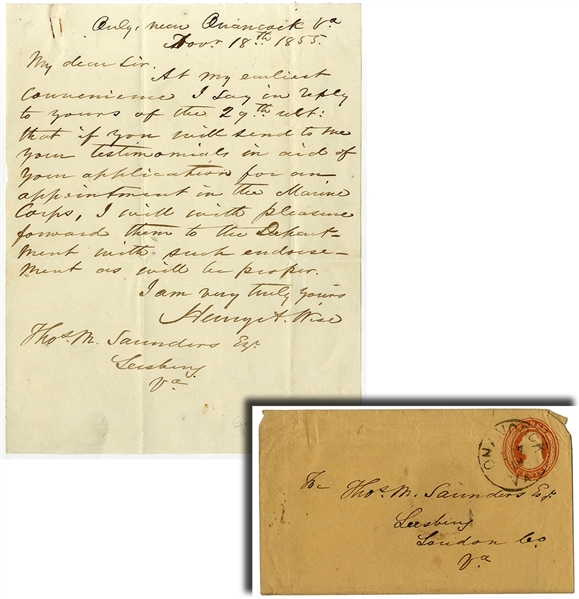 Only, near Onancock Va
Novr 18th 1855.
My dear Sir.
At my earliest
convenience I say in reply
to yours of the 29th ult:
that if you will send to me
your testimonials in aid of
your application for an
appointment in the Marine
Corps, I will with pleasure
forward them to the Depart-
ment with such endorse-
ment as will be proper.
I am very truly yours
Henry A. Wise
Thos. M. Saunders Esqr.
Leesburg
Va
ONANCOCK
VA
To Thos. M. Saunders Esqr.
Leesburg
Loudon Co.
Va